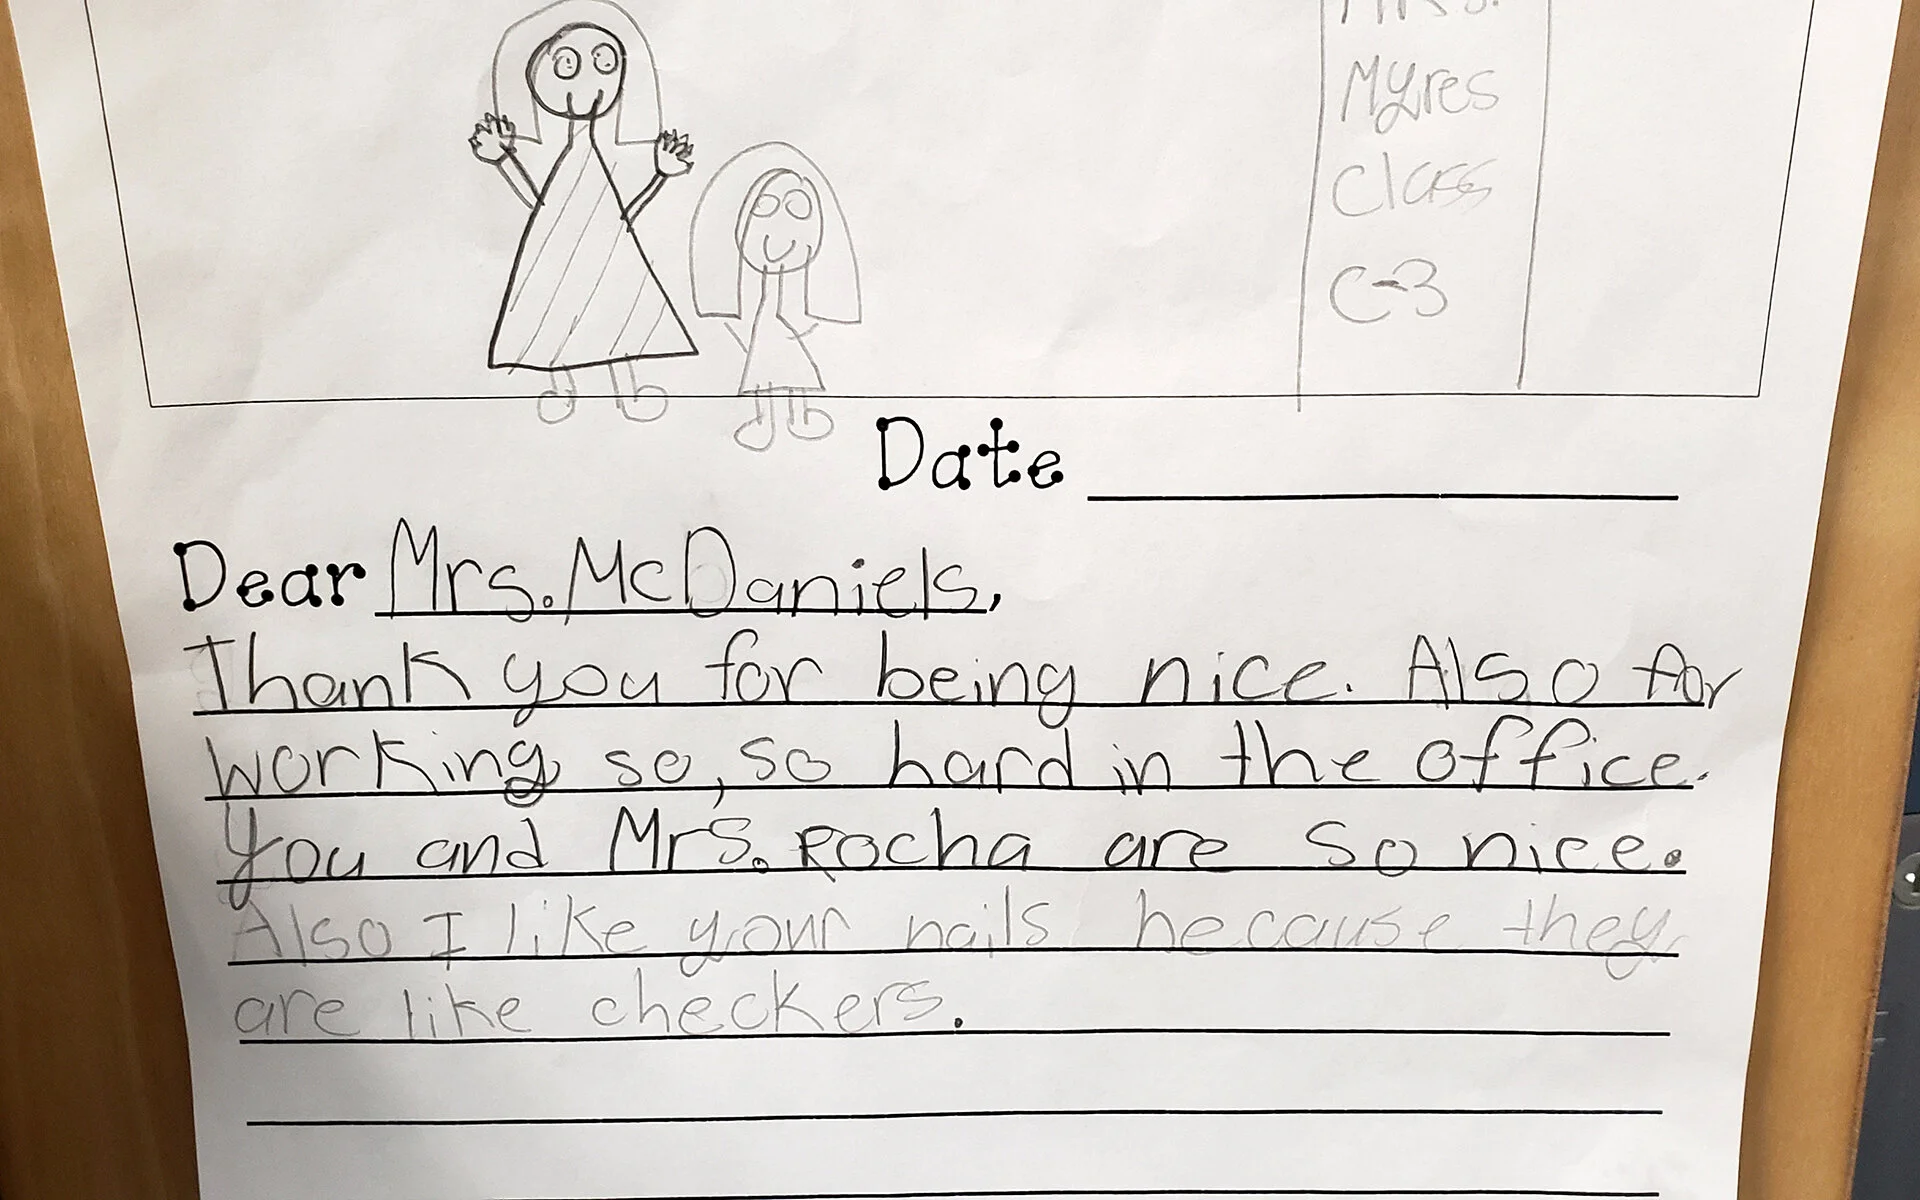 Mrs.
Myres
Class
C-3
Date
Dear Mrs. McDaniels,
Thank you for being nice. Also for
working so, so hard in the office.
You and Mrs. Rocha are so nice.
Also I like your nails because they
are like checkers.